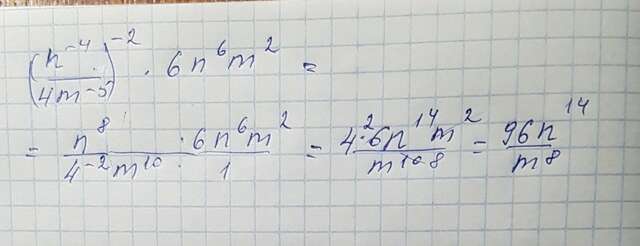 (n⁻⁴/4m⁻⁵)⁻² · 6n⁶m² =
= n⁸/4⁻²m¹⁰ · 6n⁶m²/1 = 4²·6n¹⁴m²/m¹⁰ 8 = 96n¹⁴/m⁸